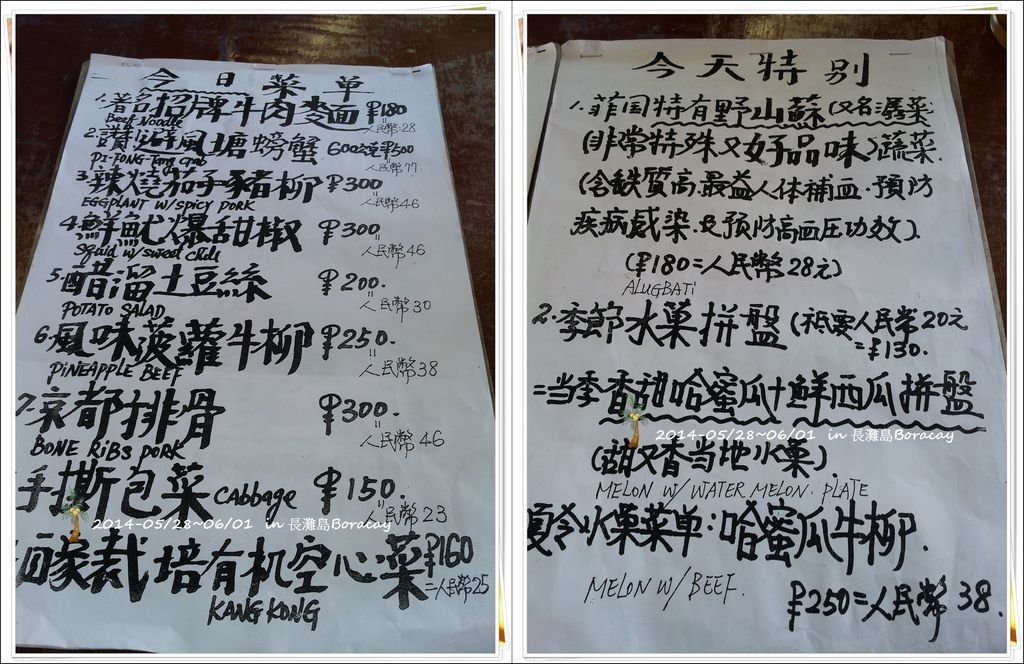 今日菜单
1.著名招牌牛肉麵 ₱180
Beef Noodle
人民幣28
2.讚 避風塘螃蟹 600公克₱500
PI-FONG-Tang Crab
人民幣77
3.辣燒茄子豬柳 ₱300
EGGPLANT W/SPICY PORK
人民幣46
4.鮮魷爆甜椒 ₱300
Sqaid w/sweet chili
人民幣46
5.醋溜土豆絲 ₱200.
POTATO SALAD
人民幣30
6.風味菠蘿牛柳 ₱250.
PINEAPPLE BEEF
人民幣38
7.京都排骨 ₱300.
BONE RiBs PORK
人民幣46
手撕包菜 cabbage ₱150.
人民幣23
家栽培有机空心菜 ₱160
KANG KONG
=人民幣25
2014-05/28~06/01 in 長灘島Boracay
今天特别
1.菲国特有野山蘇(又名潺菜
(非常特殊又好品味)蔬菜.
(含鉄質高.最益人体補血.預防
疾病感染.及預防高血圧功效).
(₱180=人民幣28元)
ALUGBATI
2.季節水菓拼盤(衹需人民幣20元
=₱130.
=当季香甜哈蜜瓜+鮮西瓜拼盤
(甜又香当地水菓)
MELON W/ WATER MELON. PLATE
夏令水菓菜单:哈蜜瓜牛柳.
MELON W/ BEEF.
₱250=人民幣38.
2014-05/28~06/01 in 長灘島Boracay